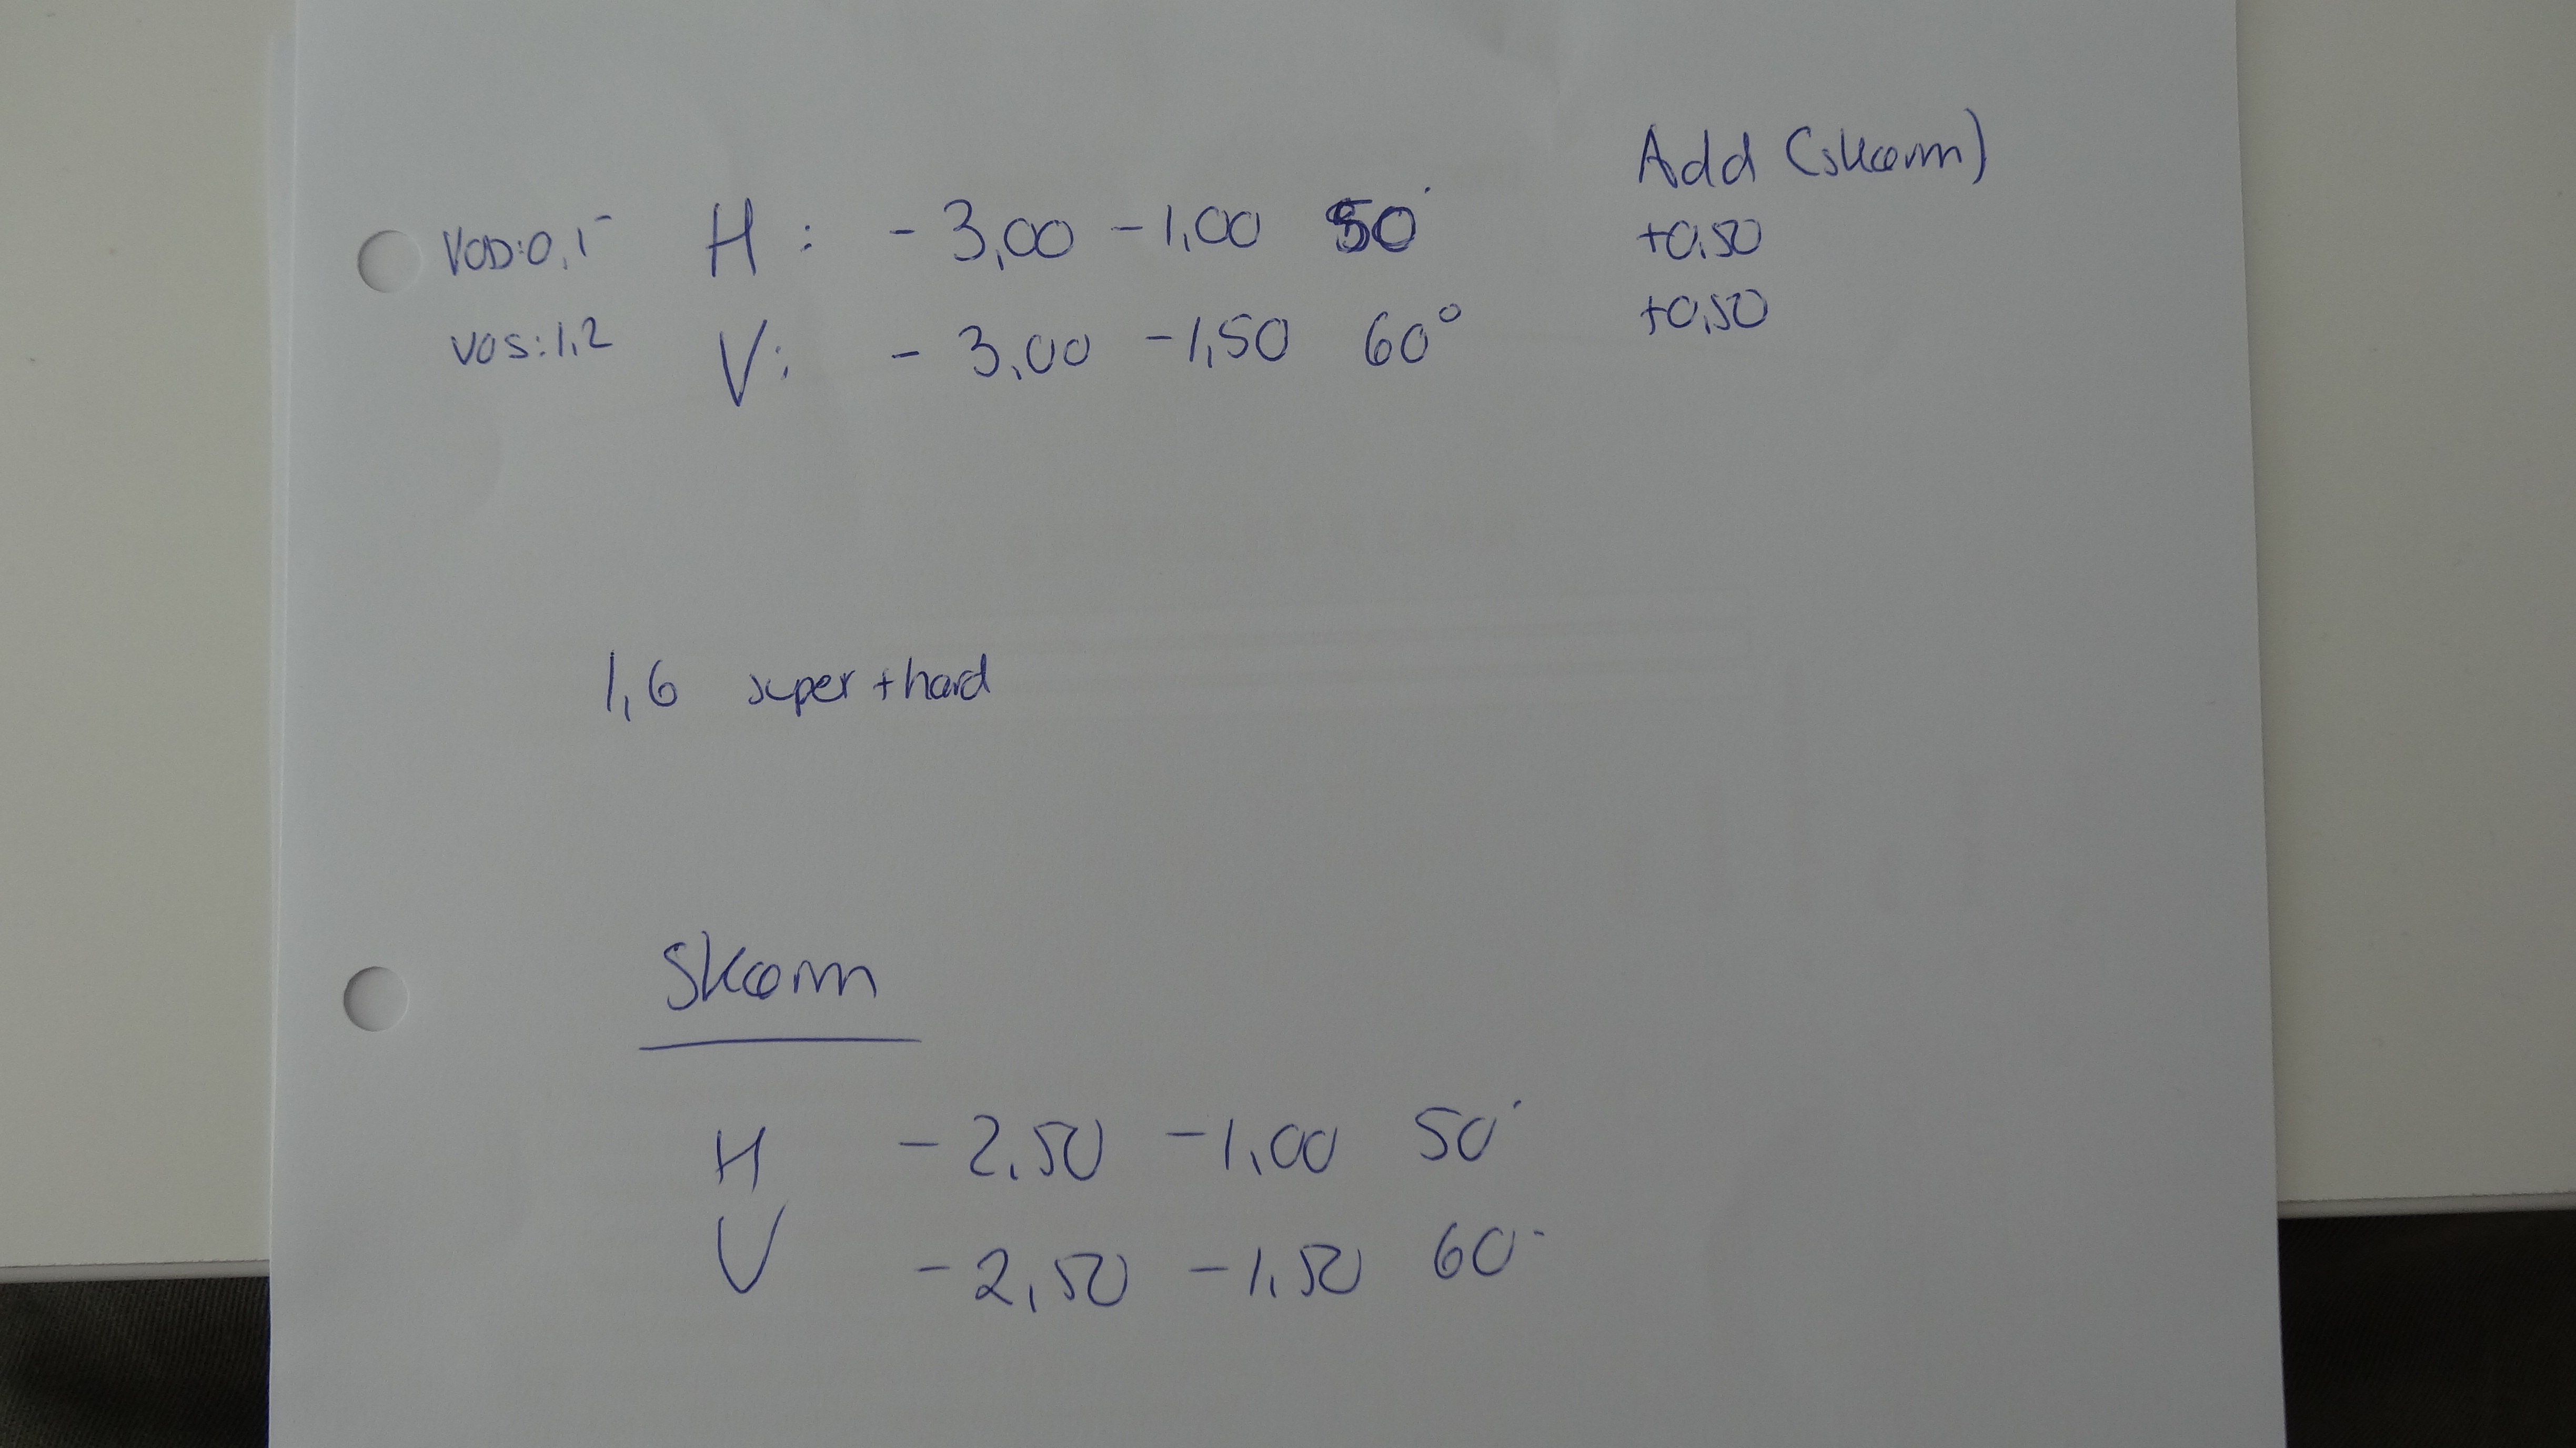 Add (skærm)
VOD:0,1⁻ H: -3,00 -1,00 50° +0,50
VOS:1,2 V: -3,00 -1,50 60° +0,50
1,6 super+hard
Skærm
H -2,50 -1,00 50°
V -2,50 -1,50 60°